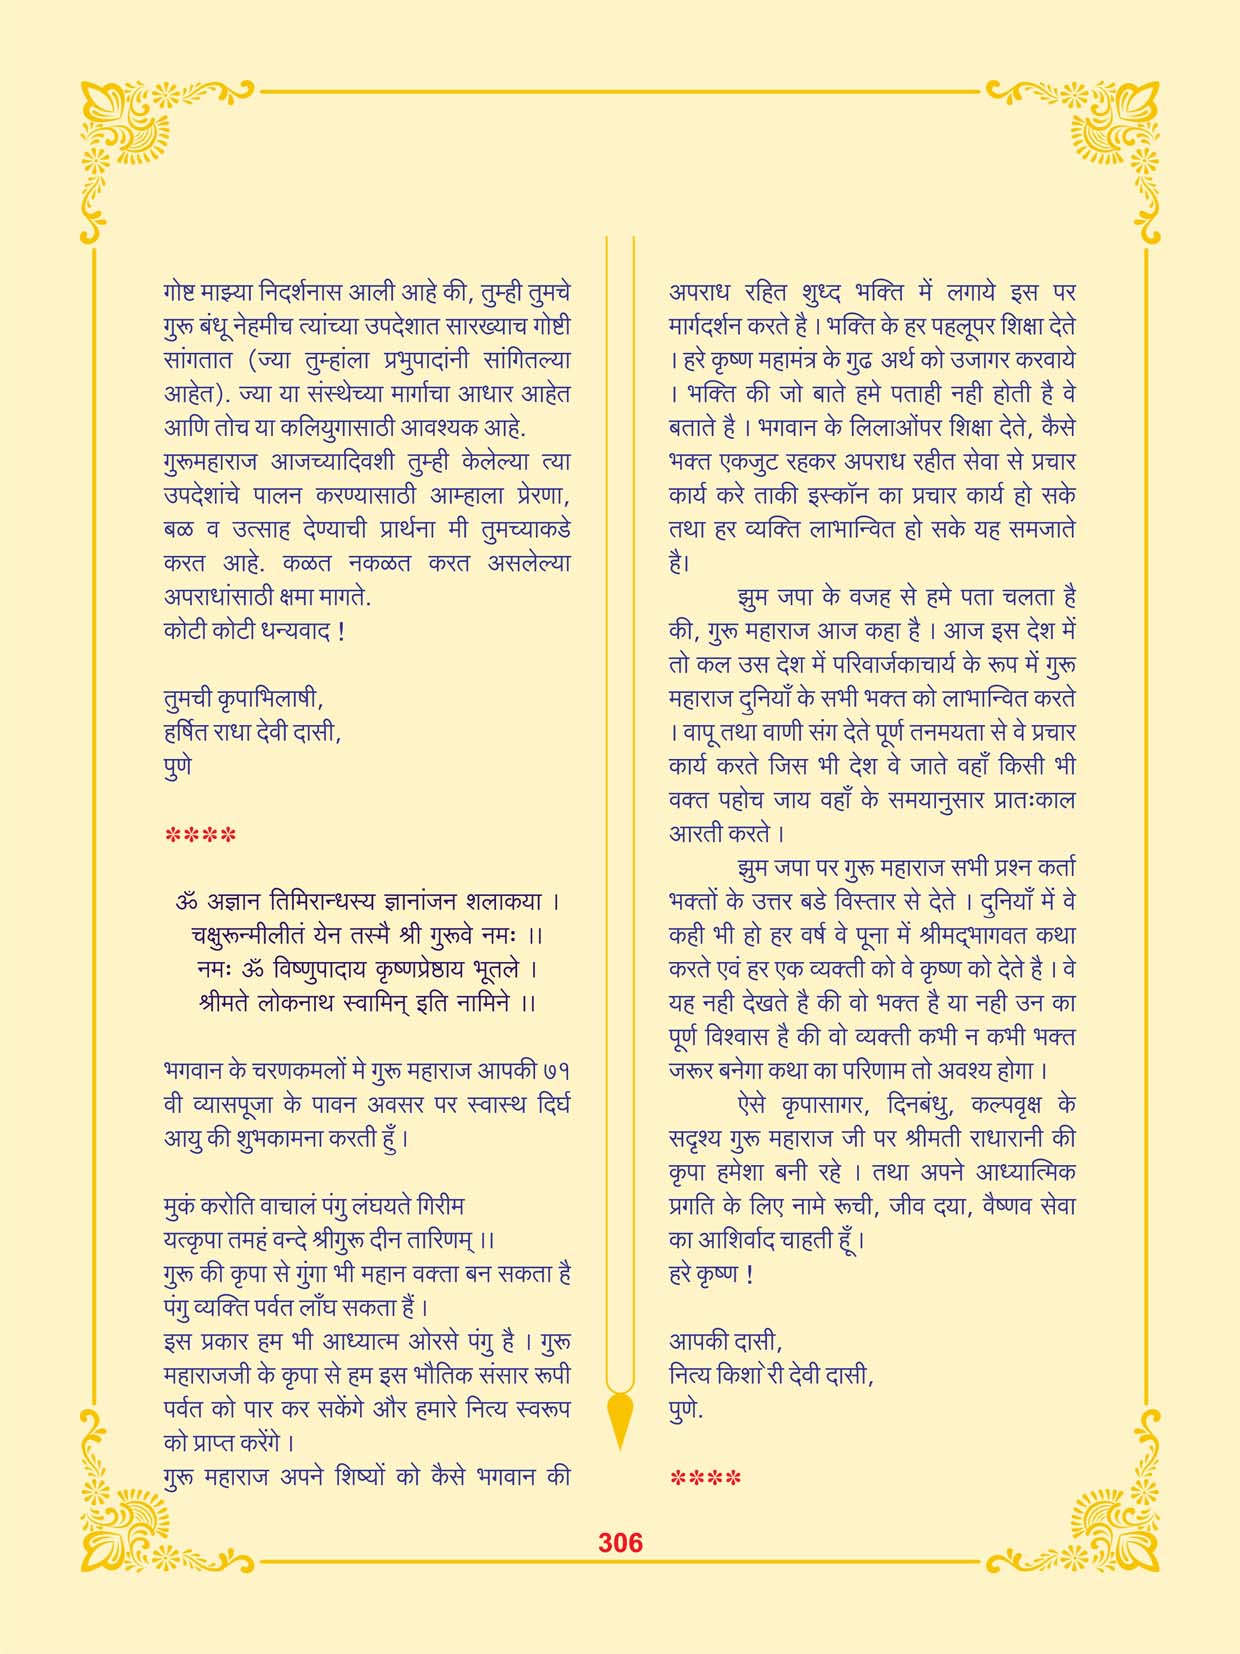 गोष्ट माझ्या निदर्शनास आली आहे की, तुम्ही तुमचे
गुरू बंधू नेहमीच त्यांच्या उपदेशात सारख्याच गोष्टी
सांगतात (ज्या तुम्हांला प्रभुपादांनी सांगितल्या
आहेत). ज्या या संस्थेच्या मार्गाचा आधार आहेत
आणि तोच या कलियुगासाठी आवश्यक आहे.
गुरूमहाराज आजच्यादिवशी तुम्ही केलेल्या त्या
उपदेशांचे पालन करण्यासाठी आम्हाला प्रेरणा,
बळ व उत्साह देण्याची प्रार्थना मी तुमच्याकडे
करत आहे. कळत नकळत करत असलेल्या
अपराधांसाठी क्षमा मागते.
कोटी कोटी धन्यवाद !
तुमची कृपाभिलाषी,
हर्षित राधा देवी दासी,
पुणे
****
ॐ अज्ञान तिमिरान्धस्य ज्ञानांजन शलाकया ।
चक्षुरून्मीलीतं येन तस्मै श्री गुरूवे नमः ।।
नमः ॐ विष्णुपादाय कृष्णप्रेष्ठाय भूतले ।
श्रीमते लोकनाथ स्वामिन् इति नामिने ।।
भगवान के चरणकमलों मे गुरू महाराज आपकी ७१
वी व्यासपूजा के पावन अवसर पर स्वास्थ दिर्घ
आयु की शुभकामना करती हुँ ।
मुकं करोति वाचालं पंगु लंघयते गिरीम
यत्कृपा तमहं वन्दे श्रीगुरू दीन तारिणम् ।।
गुरू की कृपा से गुंगा भी महान वक्ता बन सकता है
पंगु व्यक्ति पर्वत लाँघ सकता हैं ।
इस प्रकार हम भी आध्यात्म ओरसे पंगु है । गुरू
महाराजजी के कृपा से हम इस भौतिक संसार रूपी
पर्वत को पार कर सकेंगे और हमारे नित्य स्वरूप
को प्राप्त करेंगे ।
गुरू महाराज अपने शिष्यों को कैसे भगवान की
अपराध रहित शुध्द भक्ति में लगाये इस पर
मार्गदर्शन करते है । भक्ति के हर पहलूपर शिक्षा देते
। हरे कृष्ण महामंत्र के गुढ अर्थ को उजागर करवाये
। भक्ति की जो बाते हमे पताही नही होती है वे
बताते है । भगवान के लिलाओंपर शिक्षा देते, कैसे
भक्त एकजुट रहकर अपराध रहीत सेवा से प्रचार
कार्य करे ताकी इस्कॉन का प्रचार कार्य हो सके
तथा हर व्यक्ति लाभान्वित हो सके यह समजाते
है।
झुम जपा के वजह से हमे पता चलता है
की, गुरू महाराज आज कहा है । आज इस देश में
तो कल उस देश में परिवार्जकाचार्य के रूप में गुरू
महाराज दुनियाँ के सभी भक्त को लाभान्वित करते
। वापू तथा वाणी संग देते पूर्ण तनमयता से वे प्रचार
कार्य करते जिस भी देश वे जाते वहाँ किसी भी
वक्त पहोच जाय वहाँ के समयानुसार प्रातःकाल
आरती करते ।
झुम जपा पर गुरू महाराज सभी प्रश्न कर्ता
भक्तों के उत्तर बडे विस्तार से देते । दुनियाँ में वे
कही भी हो हर वर्ष वे पूना में श्रीमद्भागवत कथा
करते एवं हर एक व्यक्ती को वे कृष्ण को देते है । वे
यह नही देखते है की वो भक्त है या नही उन का
पूर्ण विश्वास है की वो व्यक्ती कभी न कभी भक्त
जरूर बनेगा कथा का परिणाम तो अवश्य होगा ।
ऐसे कृपासागर, दिनबंधु, कल्पवृक्ष के
सदृश्य गुरू महाराज जी पर श्रीमती राधारानी की
कृपा हमेशा बनी रहे । तथा अपने आध्यात्मिक
प्रगति के लिए नामे रूची, जीव दया, वैष्णव सेवा
का आशिर्वाद चाहती हूँ ।
हरे कृष्ण !
आपकी दासी,
नित्य किशोरी देवी दासी,
पुणे.
****
306